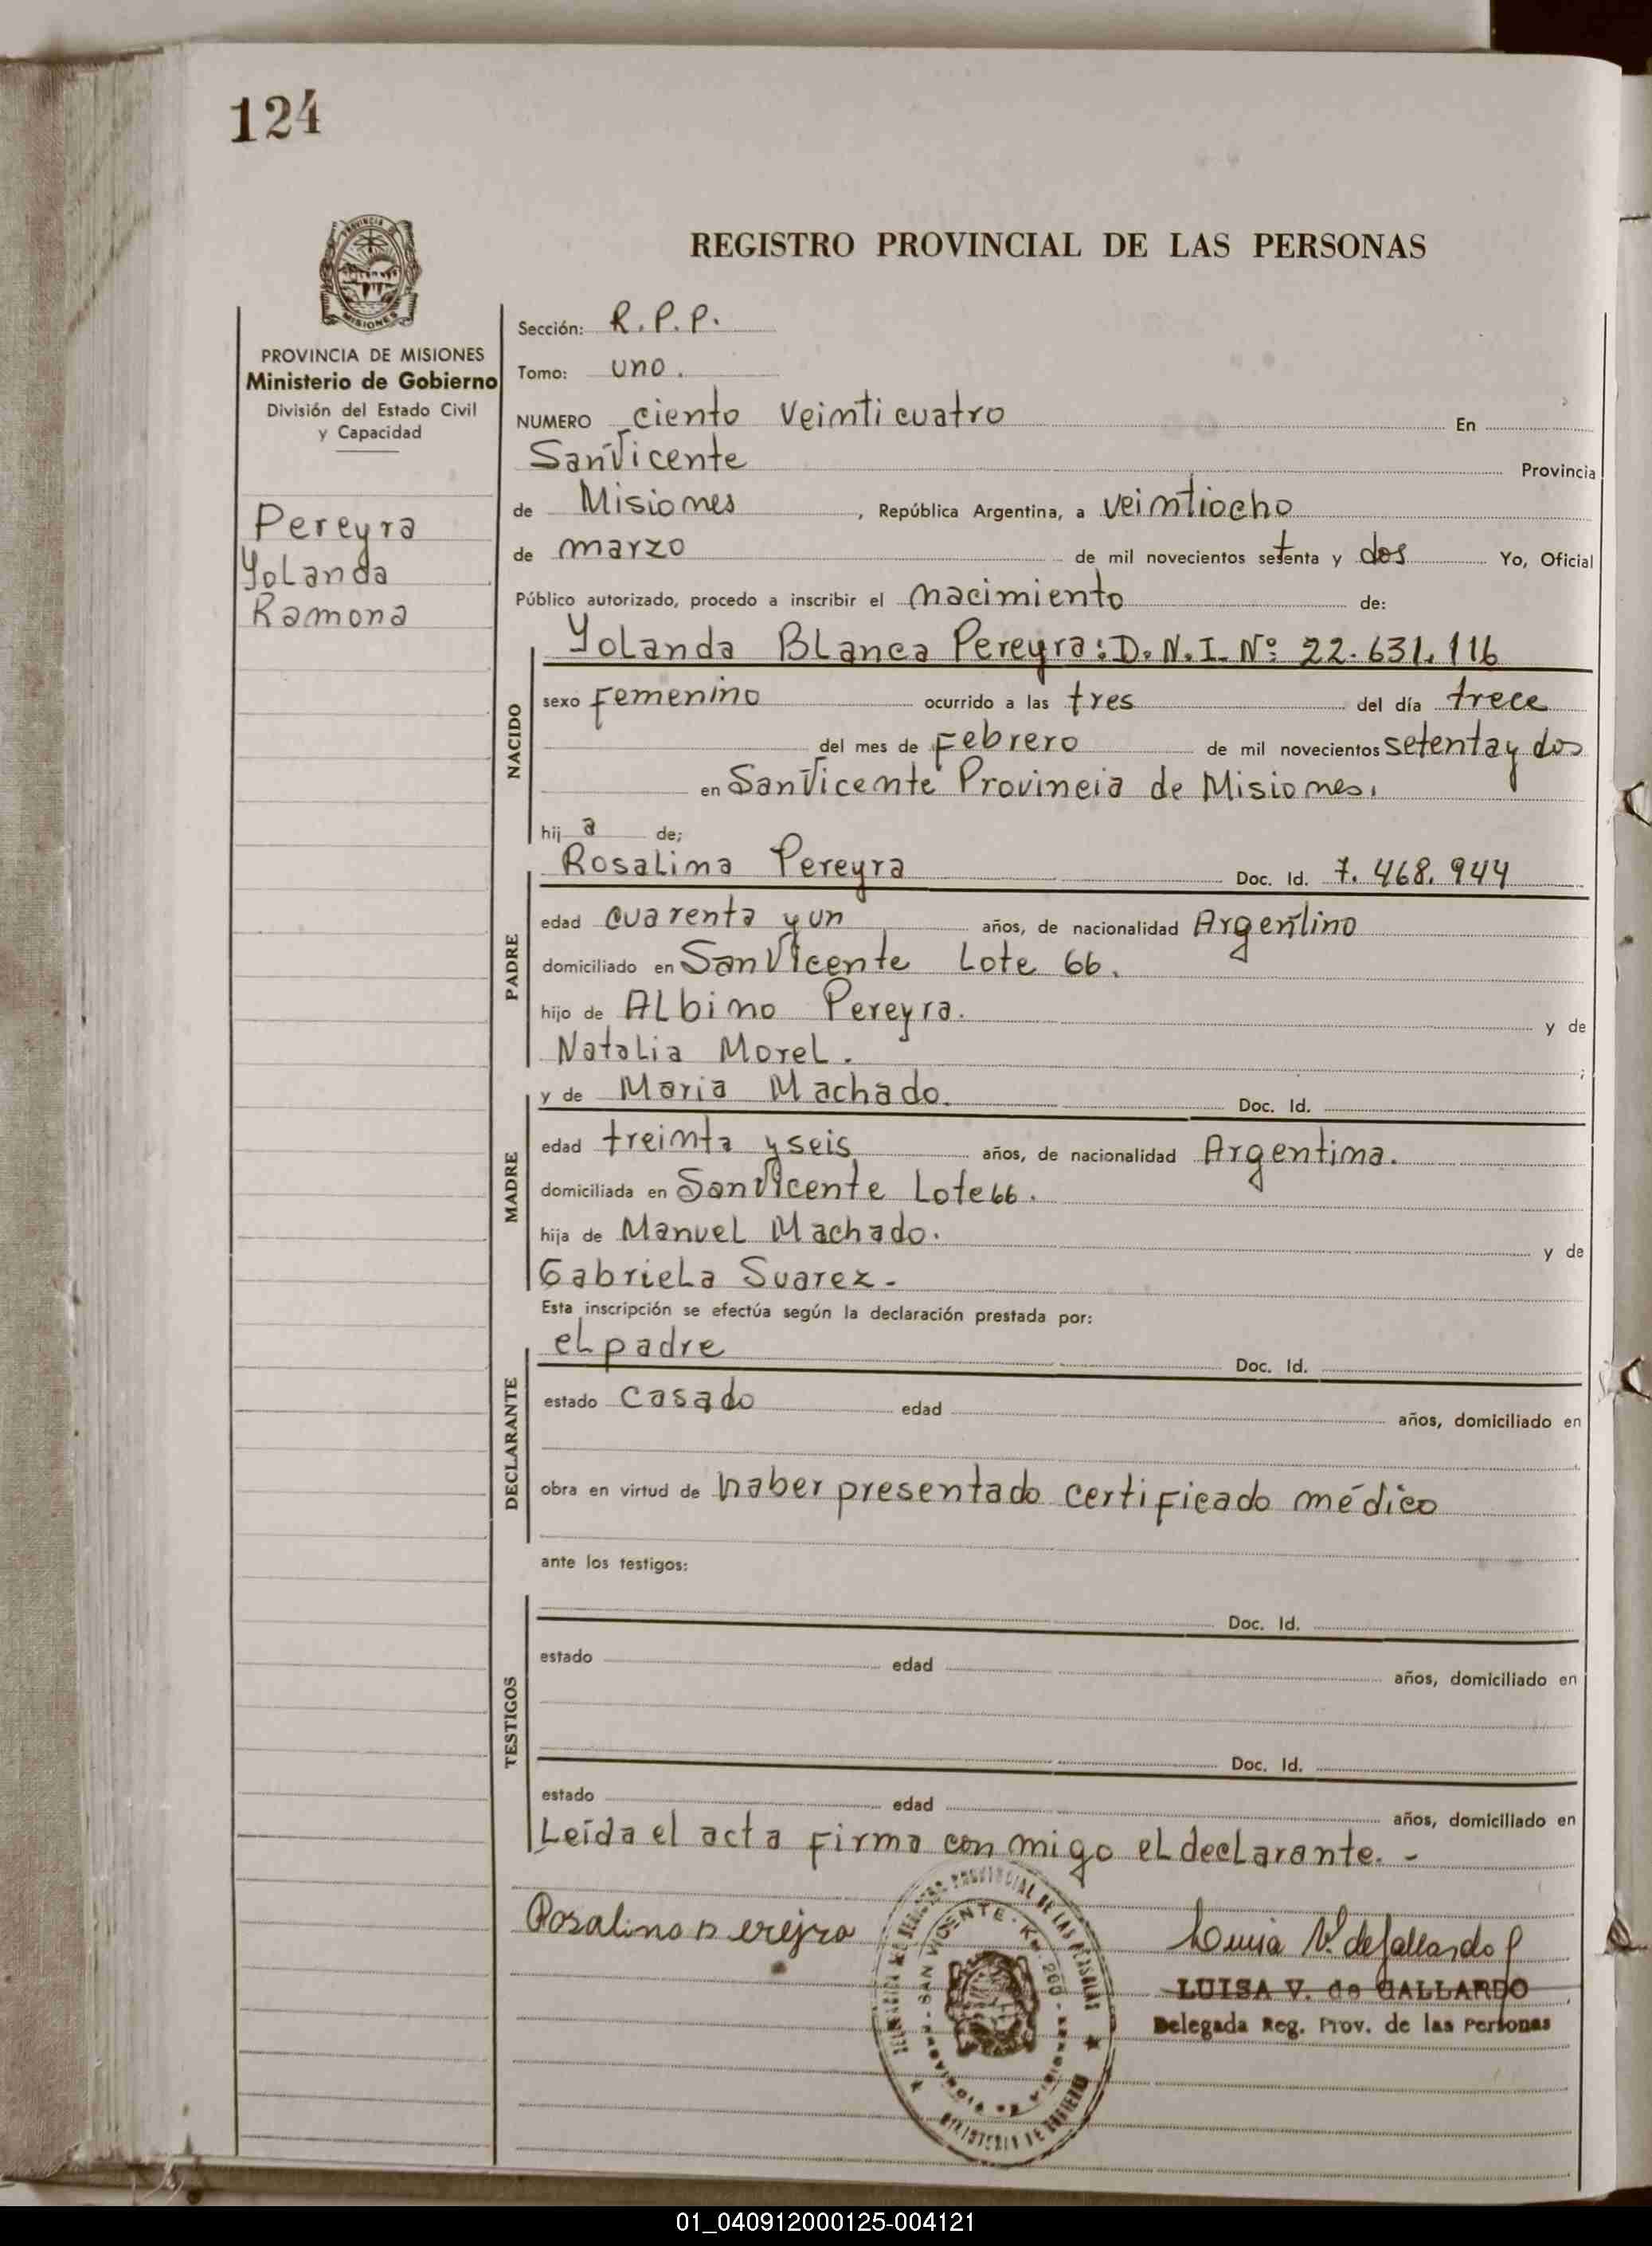 124
MISIONES
REGISTRO PROVINCIAL DE LAS PERSONAS
PROVINCIA DE MISIONES
Ministerio de Gobierno
División del Estado Civil
y Capacidad
Pereyra
Yolanda
Ramona
Sección: R.P.P.
Tomo: uno.
NUMERO ciento veinticuatro En
San Vicente Provincia
de Misiones, República Argentina, a veintiocho
de marzo de mil novecientos setenta y dos Yo, Oficial
Público autorizado, procedo a inscribir el nacimiento de:
Yolanda Blanca Pereyra: D.N.I. Nº 22.631.116
NACIDO
sexo femenino ocurrido a las tres del día trece
del mes de Febrero de mil novecientos setenta y dos
en San Vicente Provincia de Misiones.
hij a de;
Rosalino Pereyra Doc. Id. 7.468.944
PADRE
edad cuarenta y un años, de nacionalidad Argentino
domiciliado en San Vicente Lote 66.
hijo de Albino Pereyra. y de
Natalia Morel. ;
y de Maria Machado. Doc. Id.
MADRE
edad treinta y seis años, de nacionalidad Argentina.
domiciliada en San Vicente Lote 66.
hija de Manuel Machado. y de
Gabriela Suarez.-
Esta inscripción se efectúa según la declaración prestada por:
el padre Doc. Id.
DECLARANTE
estado casado edad años, domiciliado en
obra en virtud de haber presentado certificado médico
ante los testigos:
Doc. Id.
TESTIGOS
estado edad años, domiciliado en
Doc. Id.
estado edad años, domiciliado en
Leída el acta firma con migo el declarante.-
Rosalino Perejra
REGISTRO PROVINCIAL DE LAS PERSONAS
SAN VICENTE - Km. 260
MINISTERIO DE GOBIERNO
Luisa V. de Gallardo
LUISA V. de GALLARDO
Delegada Reg. Prov. de las Personas
01_040912000125-004121